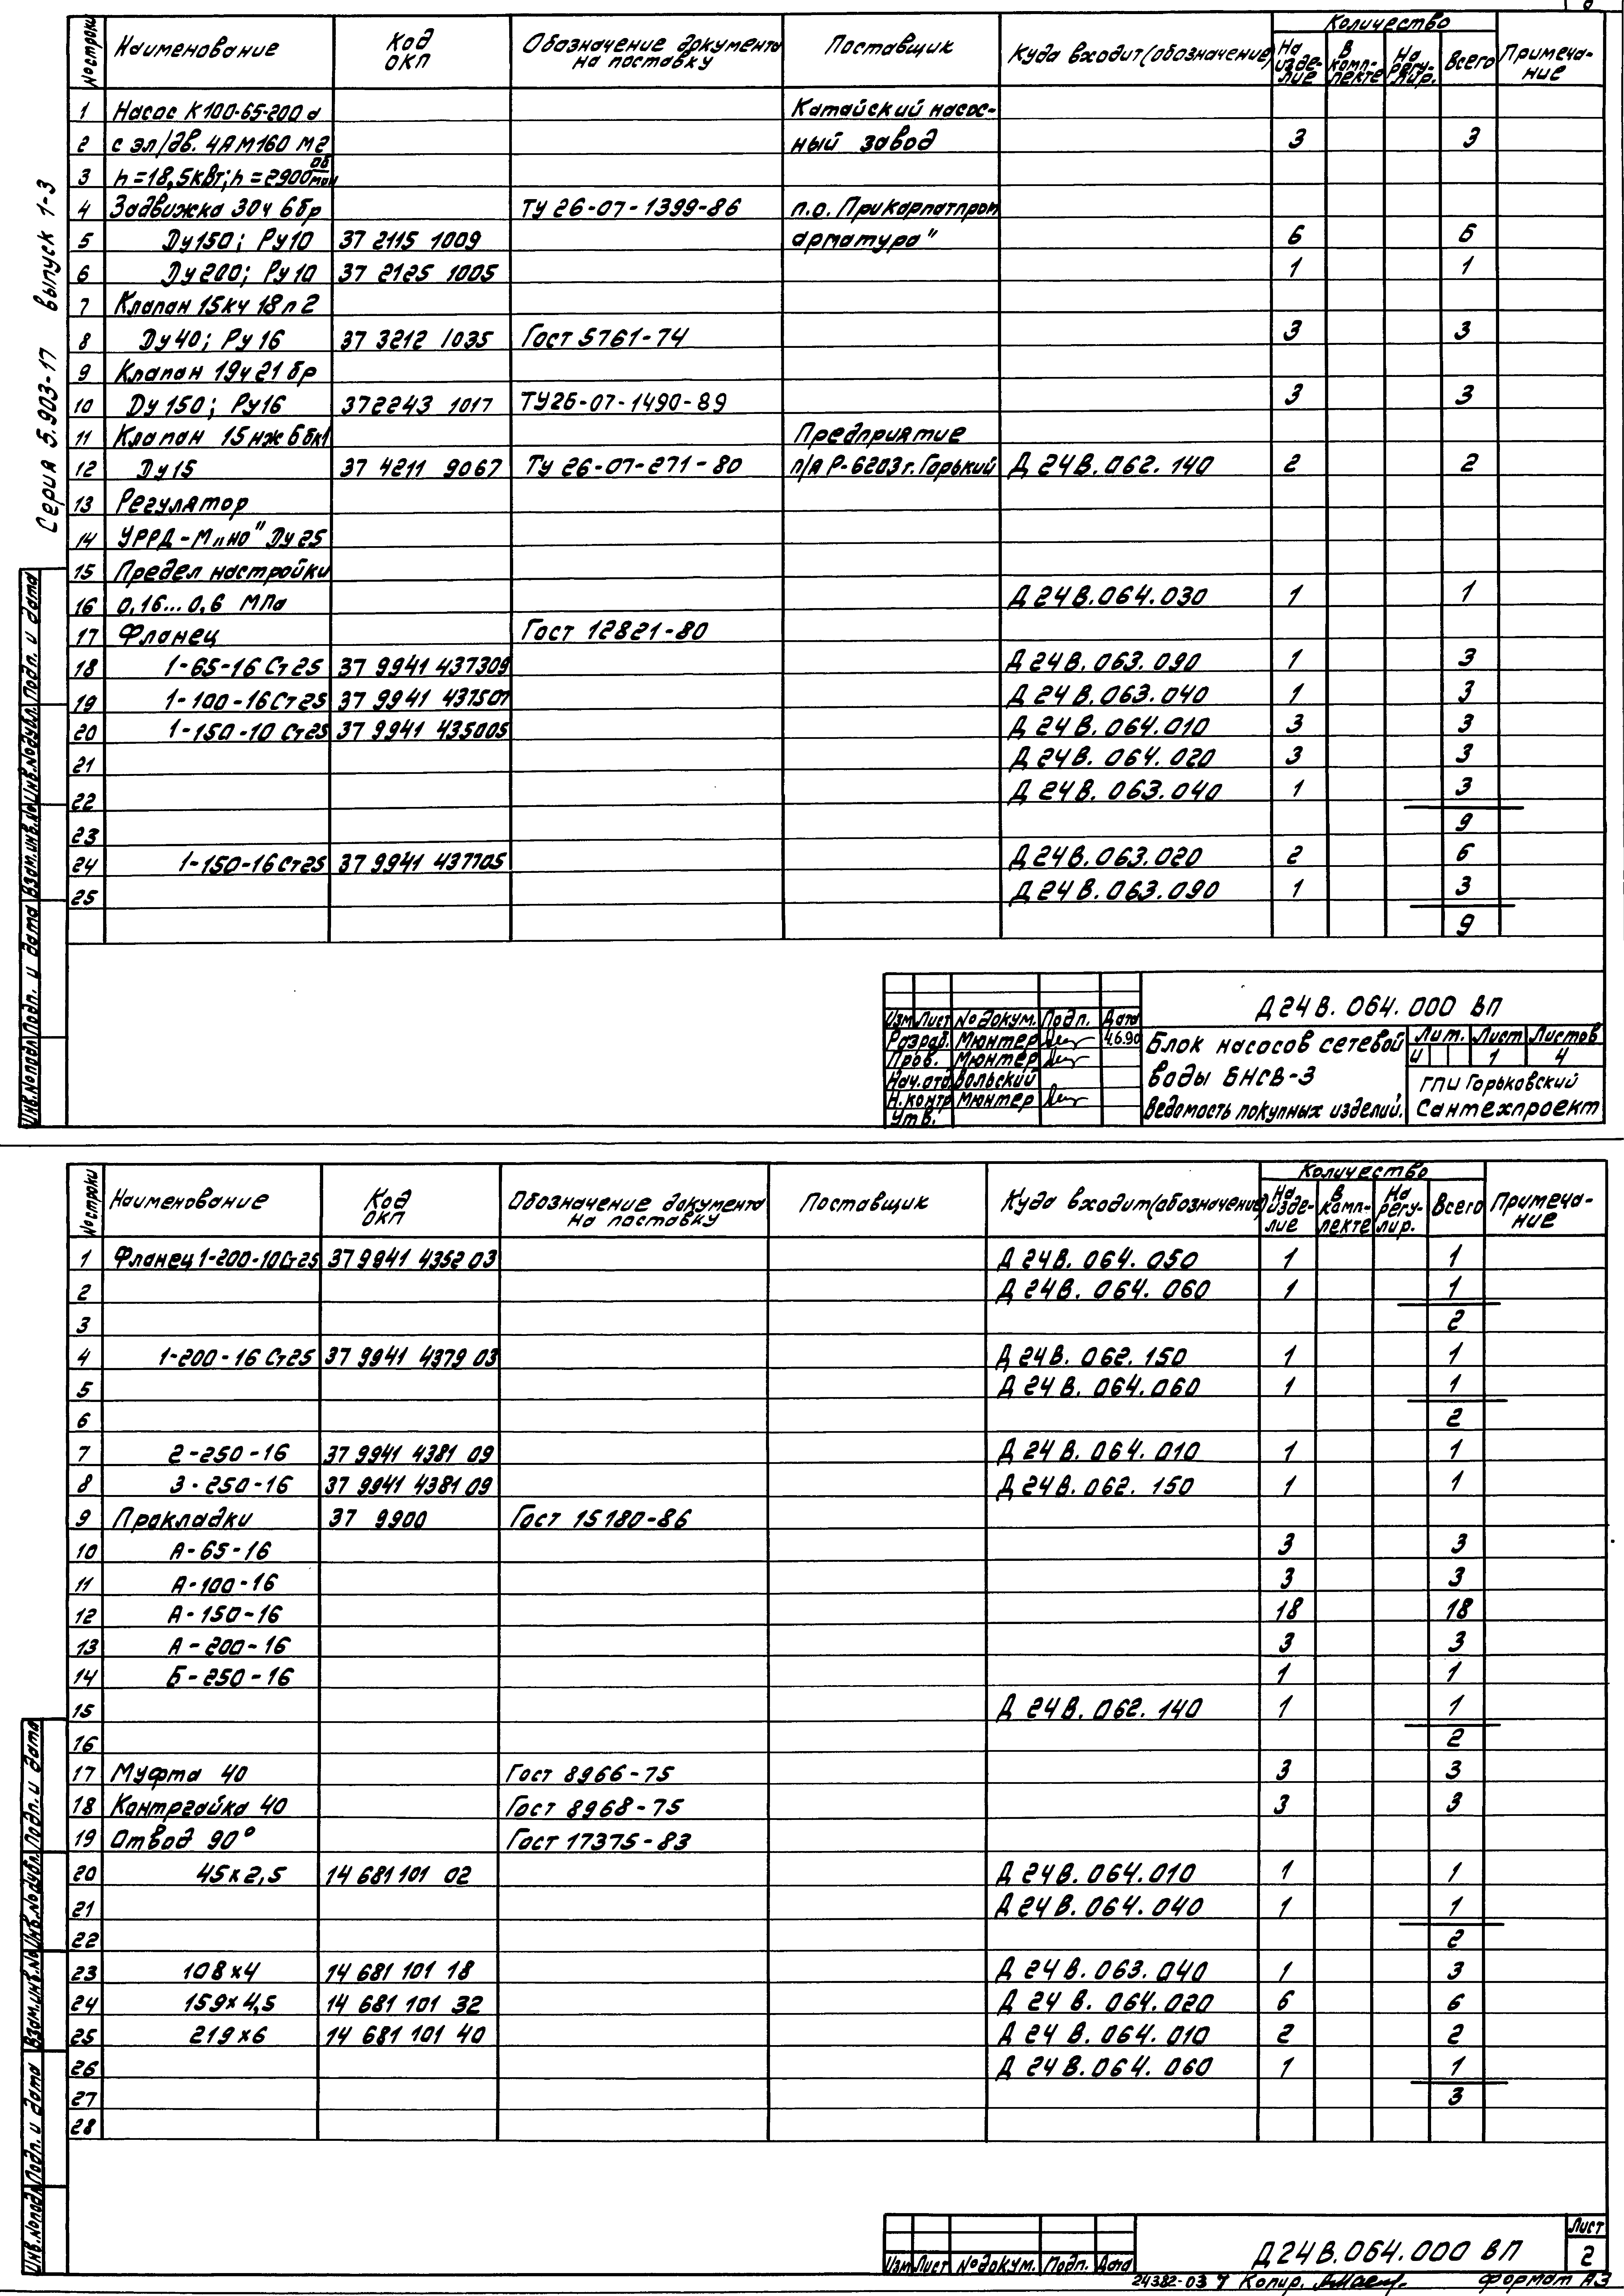 Серия 5.903-17 выпуск 1-3
№ строки Наименование Код ОКП Обозначение документа на поставку Поставщик Куда входит (обозначение) Количество На изделие В комплекте На регулир. Всего Примечание
1 Насос К100-65-200а Катайский насос-
2 с эл/дв. 4АМ160 М2 ный завод 3 3
3 N=18,5кВт; n=2900 об/мин
4 Задвижка 30ч 6бр ТУ 26-07-1399-86 п.о. Прикарпатпром
5 Ду150; Ру10 37 2115 1009 арматура" 6 6
6 Ду200; Ру10 37 2125 1005 1 1
7 Клапан 15кч 18п2
8 Ду40; Ру16 37 3212 1035 Гост 5761-74 3 3
9 Клапан 19ч21бр
10 Ду150; Ру16 372243 1017 ТУ26-07-1490-89 3 3
11 Клапан 15нж6бк1 Предприятие
12 Ду15 37 4211 9067 ТУ 26-07-271-80 п/я Р-6203 г. Горький Д 24В.062.140 2 2
13 Регулятор
14 УРРД-М „но" Ду25
15 Предел настройки
16 0,16...0,6 МПа Д 24В.064.030 1 1
17 Фланец Гост 12821-80
18 1-65-16 Ст25 37 9941 437309 Д 24В.063.090 1 3
19 1-100-16 Ст25 37 9941 437507 Д 24В.063.040 1 3
20 1-150-10 Ст25 37 9941 435005 Д 24В.064.010 3 3
21 Д 24В.064.020 3 3
22 Д 24В.063.040 1 3
23 9
24 1-150-16 Ст25 37 9941 437705 Д 24В.063.020 2 6
25 Д 24В.063.090 1 3
9
Инв.№подл. Подп. и дата Взам.инв.№ Инв.№дубл. Подп. и дата
Изм Лист № докум. Подп. Дата
Разраб. Мюнтер 4.6.90
Пров. Мюнтер
Нач.отд Вольский
Н.контр Мюнтер
Утв.
Д24В.064.000 ВП
Блок насосов сетевой
воды БНСВ-3
Ведомость покупных изделий.
Лит. Лист Листов
И 1 4
ГПИ Горьковский
Сантехпроект
№ строки Наименование Код ОКП Обозначение документа на поставку Поставщик Куда входит (обозначение) Количество На изделие В комплекте На регулир. Всего Примечание
1 Фланец 1-200-10 Ст25 37 9941 4352 03 Д 24В.064.050 1 1
2 Д 24В.064.060 1 1
3 2
4 1-200-16 Ст25 37 9941 4379 03 Д 24В.062.150 1 1
5 Д 24В.064.060 1 1
6 2
7 2-250-16 37 9941 4381 09 Д 24В.064.010 1 1
8 3-250-16 37 9941 4381 09 Д 24В.062.150 1 1
9 Прокладки 37 9900 Гост 15180-86
10 А-65-16 3 3
11 А-100-16 3 3
12 А-150-16 18 18
13 А-200-16 3 3
14 Б-250-16 1 1
15 Д 24В.062.140 1 1
16 2
17 Муфта 40 Гост 8966-75 3 3
18 Контргайка 40 Гост 8968-75 3 3
19 Отвод 90° Гост 17375-83
20 45х2,5 14 681 101 02 Д 24В.064.010 1 1
21 Д 24В.064.040 1 1
22 2
23 108х4 14 681 101 18 Д 24В.063.040 1 3
24 159х4,5 14 681 101 32 Д 24В.064.020 6 6
25 219х6 14 681 101 40 Д 24В.064.010 2 2
26 Д 24В.064.060 1 1
27 3
28
Инв.№подл Подп. и дата Взам.инв.№ Инв.№дубл. Подп. и дата
Изм Лист № докум. Подп. Дата
Д24В.064.000 ВП
Лист
2
24382-03 7 Копир. Формат А3